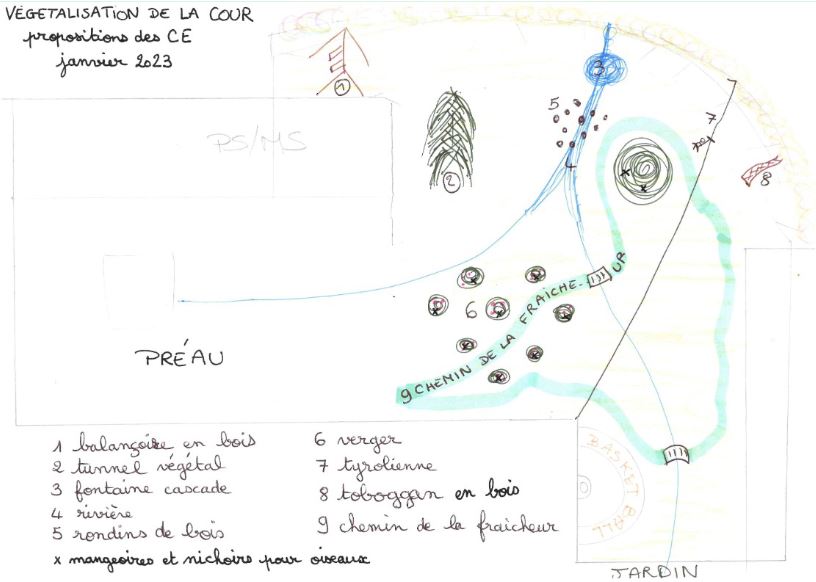 VÉGÉTALISATION DE LA COUR
propositions des CE
janvier 2023
1
PS/MS
2
3
5
4
7
8
6
9 CHEMIN DE LA FRAÎCHE-UR
PRÉAU
1 balançoire en bois
2 tunnel végétal
3 fontaine cascade
4 rivière
5 rondins de bois
6 verger
7 tyrolienne
8 toboggan en bois
9 chemin de la fraîcheur
x mangeoires et nichoirs pour oiseaux
BASKET BALL
JARDIN